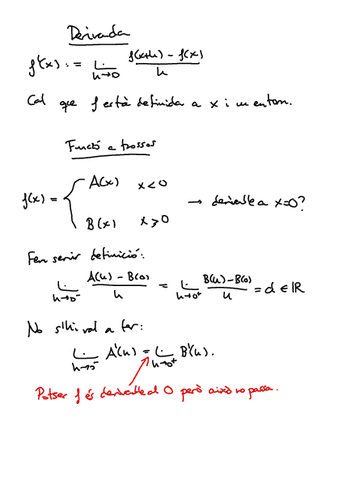 Derivada
f'(x) := lim_{h→0} (f(x+h) - f(x))/h
Cal que f està definida a x i un entorn.
Funció a trossos
f(x) = { A(x) x<0
B(x) x≥0 → derivable a x=0?
Fem servir definició:
lim_{h→0⁻} (A(h) - B(0))/h = lim_{h→0⁺} (B(h) - B(0))/h = d ∈ ℝ
No s'hi val a fer:
lim_{h→0⁻} A'(h) = lim_{h→0⁺} B'(h).
Potser f és derivable al 0 però això no passa.